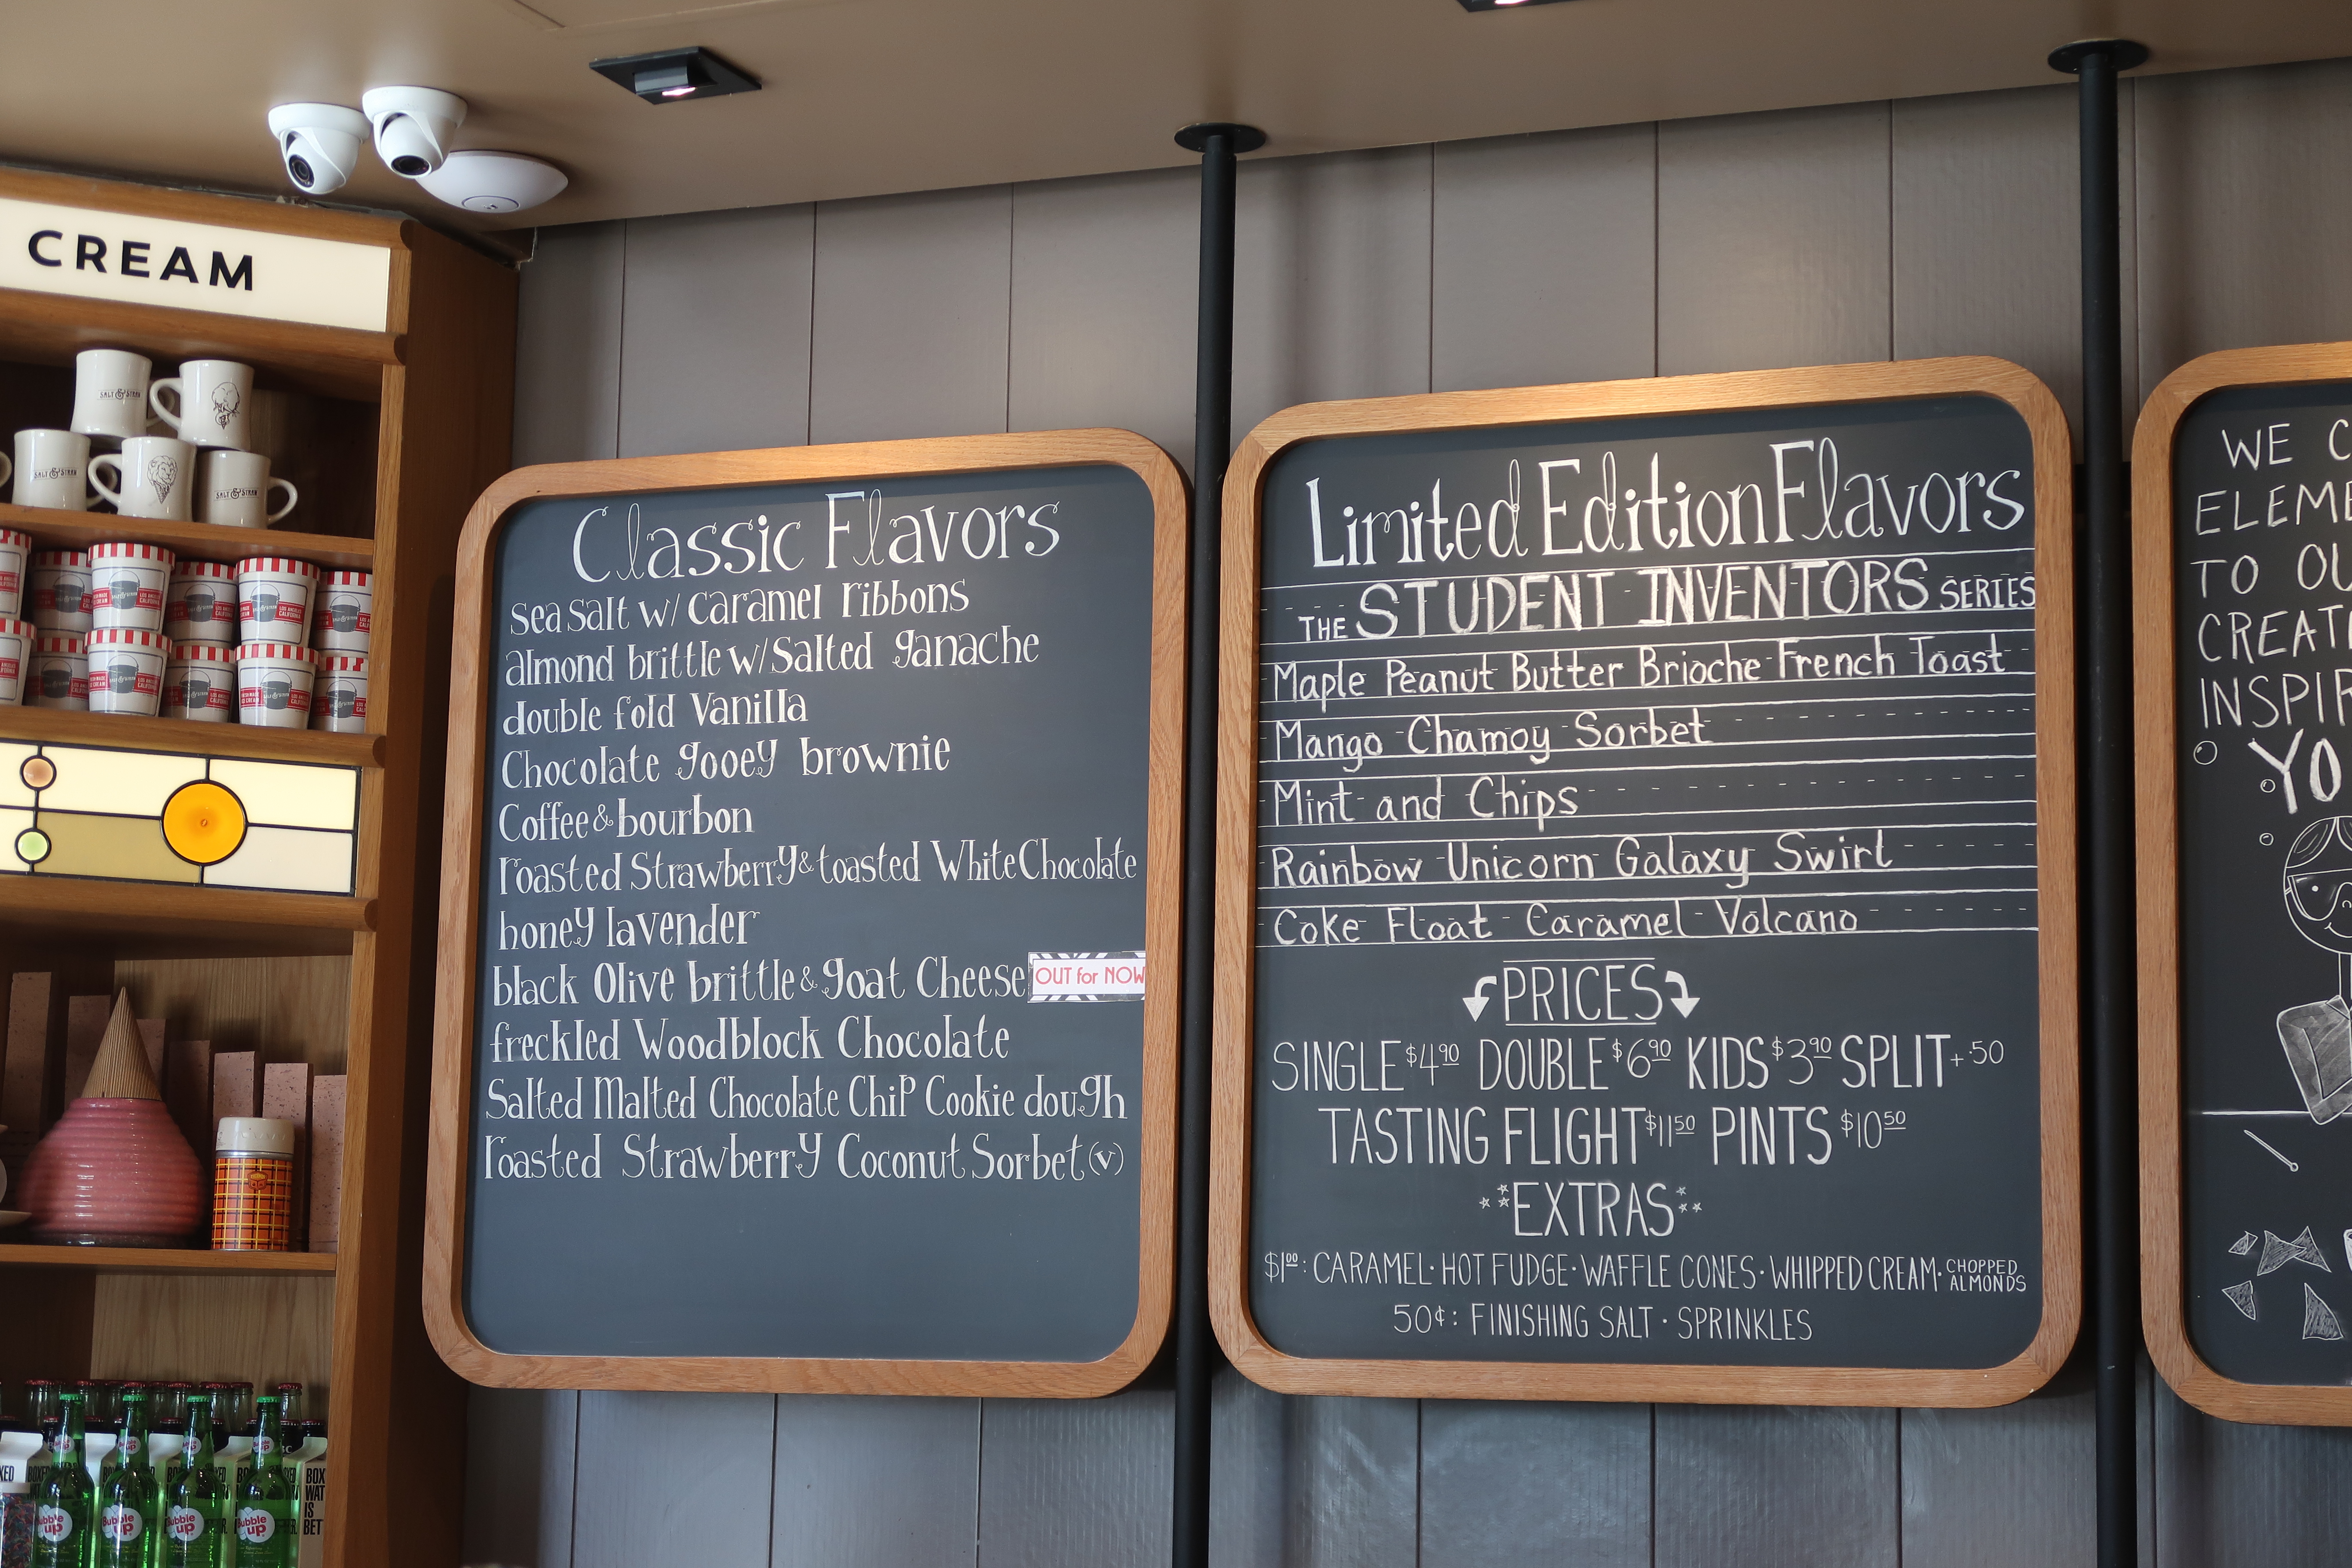 CREAM
SALT & STRAW
SALT & STRAW
SALT & STRAW
Classic Flavors
sea salt w/ Caramel ribbons
almond brittle w/ Salted ganache
double fold Vanilla
Chocolate gooey brownie
Coffee & bourbon
roasted Strawberry & toasted White Chocolate
honey lavender
black Olive brittle & goat Cheese OUT for NOW
freckled Woodblock Chocolate
Salted Malted Chocolate Chip Cookie dough
roasted Strawberry Coconut Sorbet (v)
Limited Edition Flavors
THE STUDENT INVENTORS SERIES
Maple Peanut Butter Brioche French Toast
Mango Chamoy Sorbet
Mint and Chips
Rainbow Unicorn Galaxy Swirl
Coke Float - Caramel Volcano
PRICES
SINGLE $4.90 DOUBLE $6.90 KIDS $3.90 SPLIT + .50
TASTING FLIGHT $11.50 PINTS $10.50
EXTRAS
$1.00: CARAMEL · HOT FUDGE · WAFFLE CONES · WHIPPED CREAM · CHOPPED ALMONDS
50¢: FINISHING SALT · SPRINKLES
WE C
ELEME
TO OU
CREATI
INSPIR
YO
Bubble up
Bubble up
Bubble up
Bubble up
BOX
WAT
IS
BET